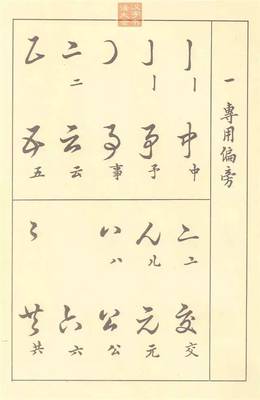 一 專用偏旁
丨 丨 申 申
亅 亅 予 予
事 事
二 二 云 云
五 五
亠 亠 交 交
儿 儿 元 元
八 八 公 公
六 六
共 共